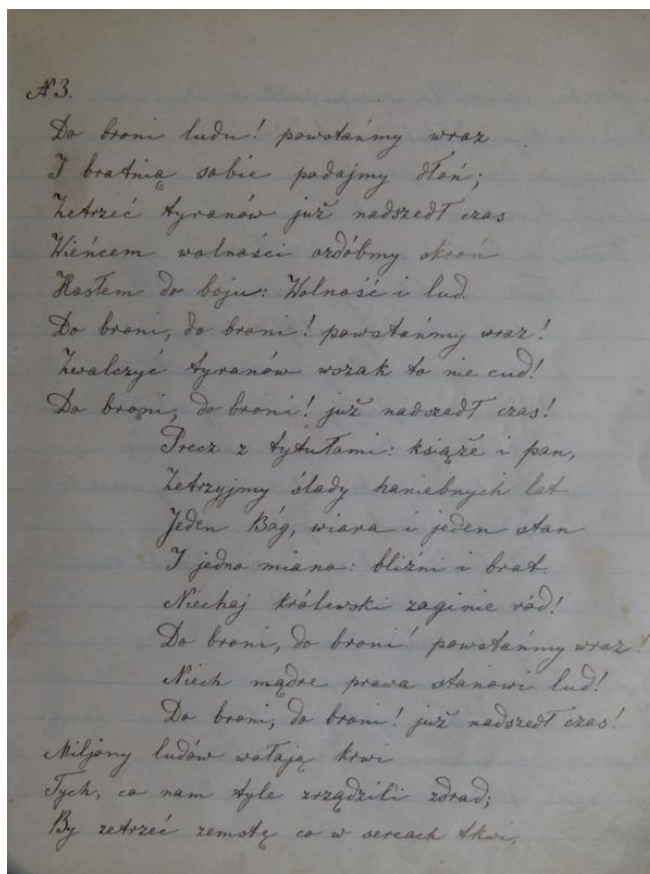 № 3.
Do broni ludu! powstańmy wraz
I bratnią sobie podajmy dłoń;
Zetrzeć tyranów już nadszedł czas
Wieńcem wolności ozdóbmy skroń
Hasłem do boju: Wolność i lud.
Do broni, do broni! powstańmy wraz!
Zwalczyć tyranów wszak to nie cud!
Do broni, do broni! już nadszedł czas!
Precz z tytułami: książe i pan,
Zetrzyjmy ślady haniebnych lat
Jeden Bóg, wiara i jeden stan
I jedno miano: bliźni i brat.
Niechaj królewski zaginie ród!
Do broni, do broni! powstańmy wraz!
Niech mądre prawa stanowi lud!
Do broni, do broni! już nadszedł czas!
Miljony ludów wołają krwi
Tych, co nam tyle zrządzili zdrad;
By zetrzeć zemstę co w sercach tkwi,